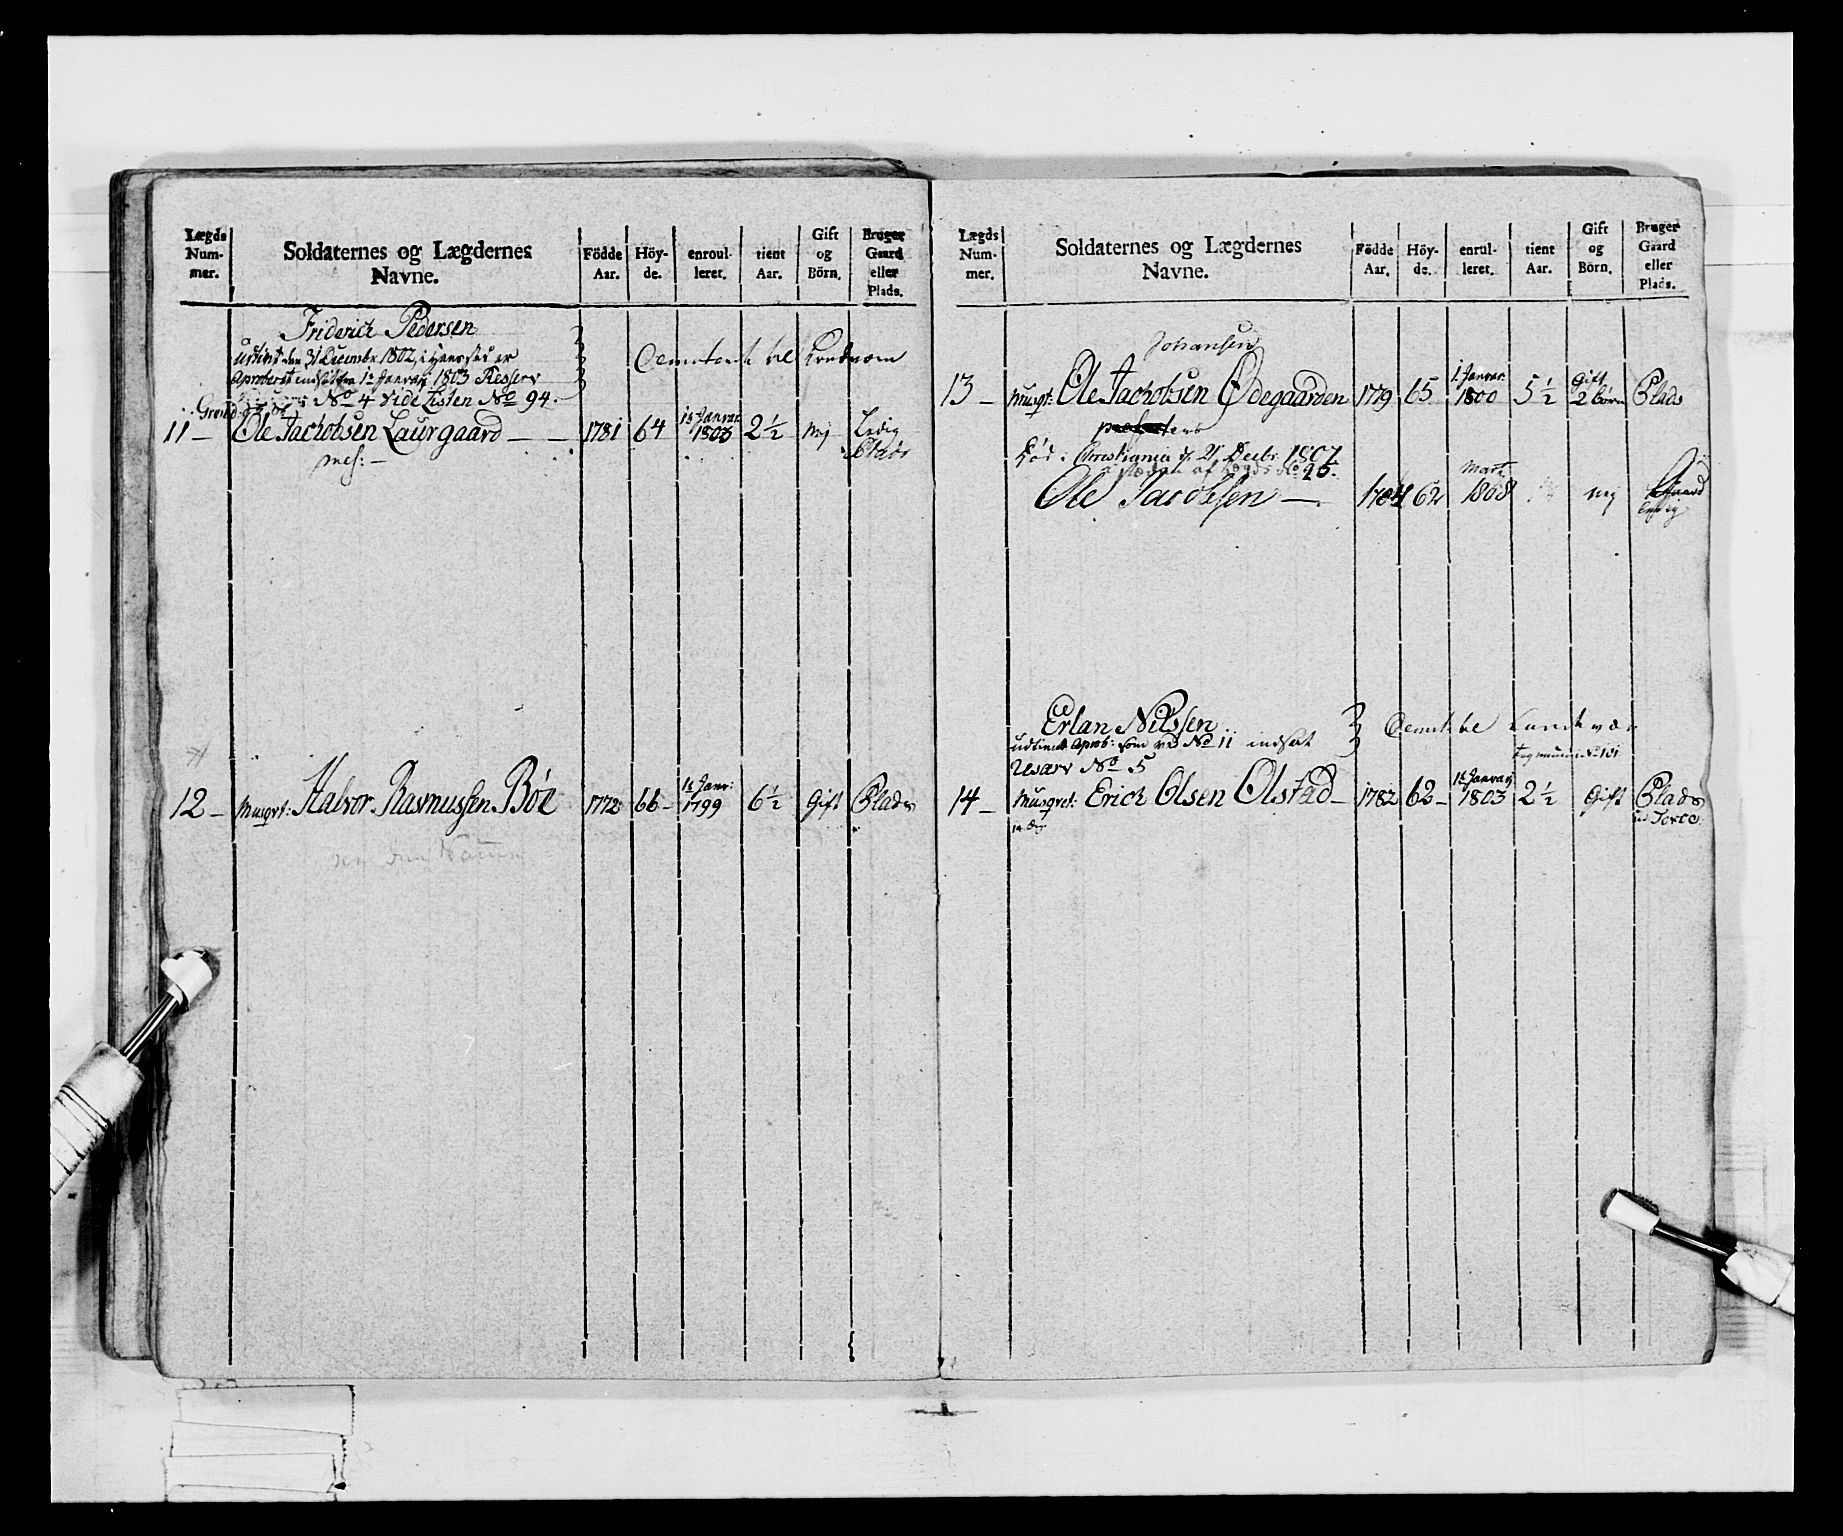 Lægds Num-mer.
Soldaternes og Lægdernes Navne.
Födde Aar.
Höy-de.
enroul-leret.
tient Aar.
Gift og Börn.
Bruger Gaard eller Plads.
Friderich Pedersen
udtient den 31 Decembr. 1802, i Hans sted er
Aproberet indsat fra 1te Januarj 1803 Reserv
No 4 vide Listen No 94.
11 – Ole Jachobsen Laurgaard – – 1781 64 1te Januar 1803 2½ nej Ledig Plads
12 – Musqvt: Halvor Rasmussen Böe 1772 66 – 1te Janr: 1799 6½ Gift Plads
Lægds Num-mer.
Soldaternes og Lægdernes Navne.
Födde Aar.
Höy-de.
enrul-leret.
tient Aar.
Gift og Börn.
Bruger Gaard eller Plads.
Johansen
13 – Musqt: Ole Jachobsen Ødegaarden 1779 65 1 Janvar: 1800 5½ Gift 2 börn Plads
Död i Christiania d. 21 Decbr. 1807
No 25.
Ole Jacobsen – 1784 62 Marti 1808 nej Gaard
Erlan Nilssen
udtient Aprob: som ved No 11 indsat
Resarv No 5
14 – Musqvet: Erich Olsen Olstad – 1782 62 – 1te Januarj 1803 2½ Gift Plads